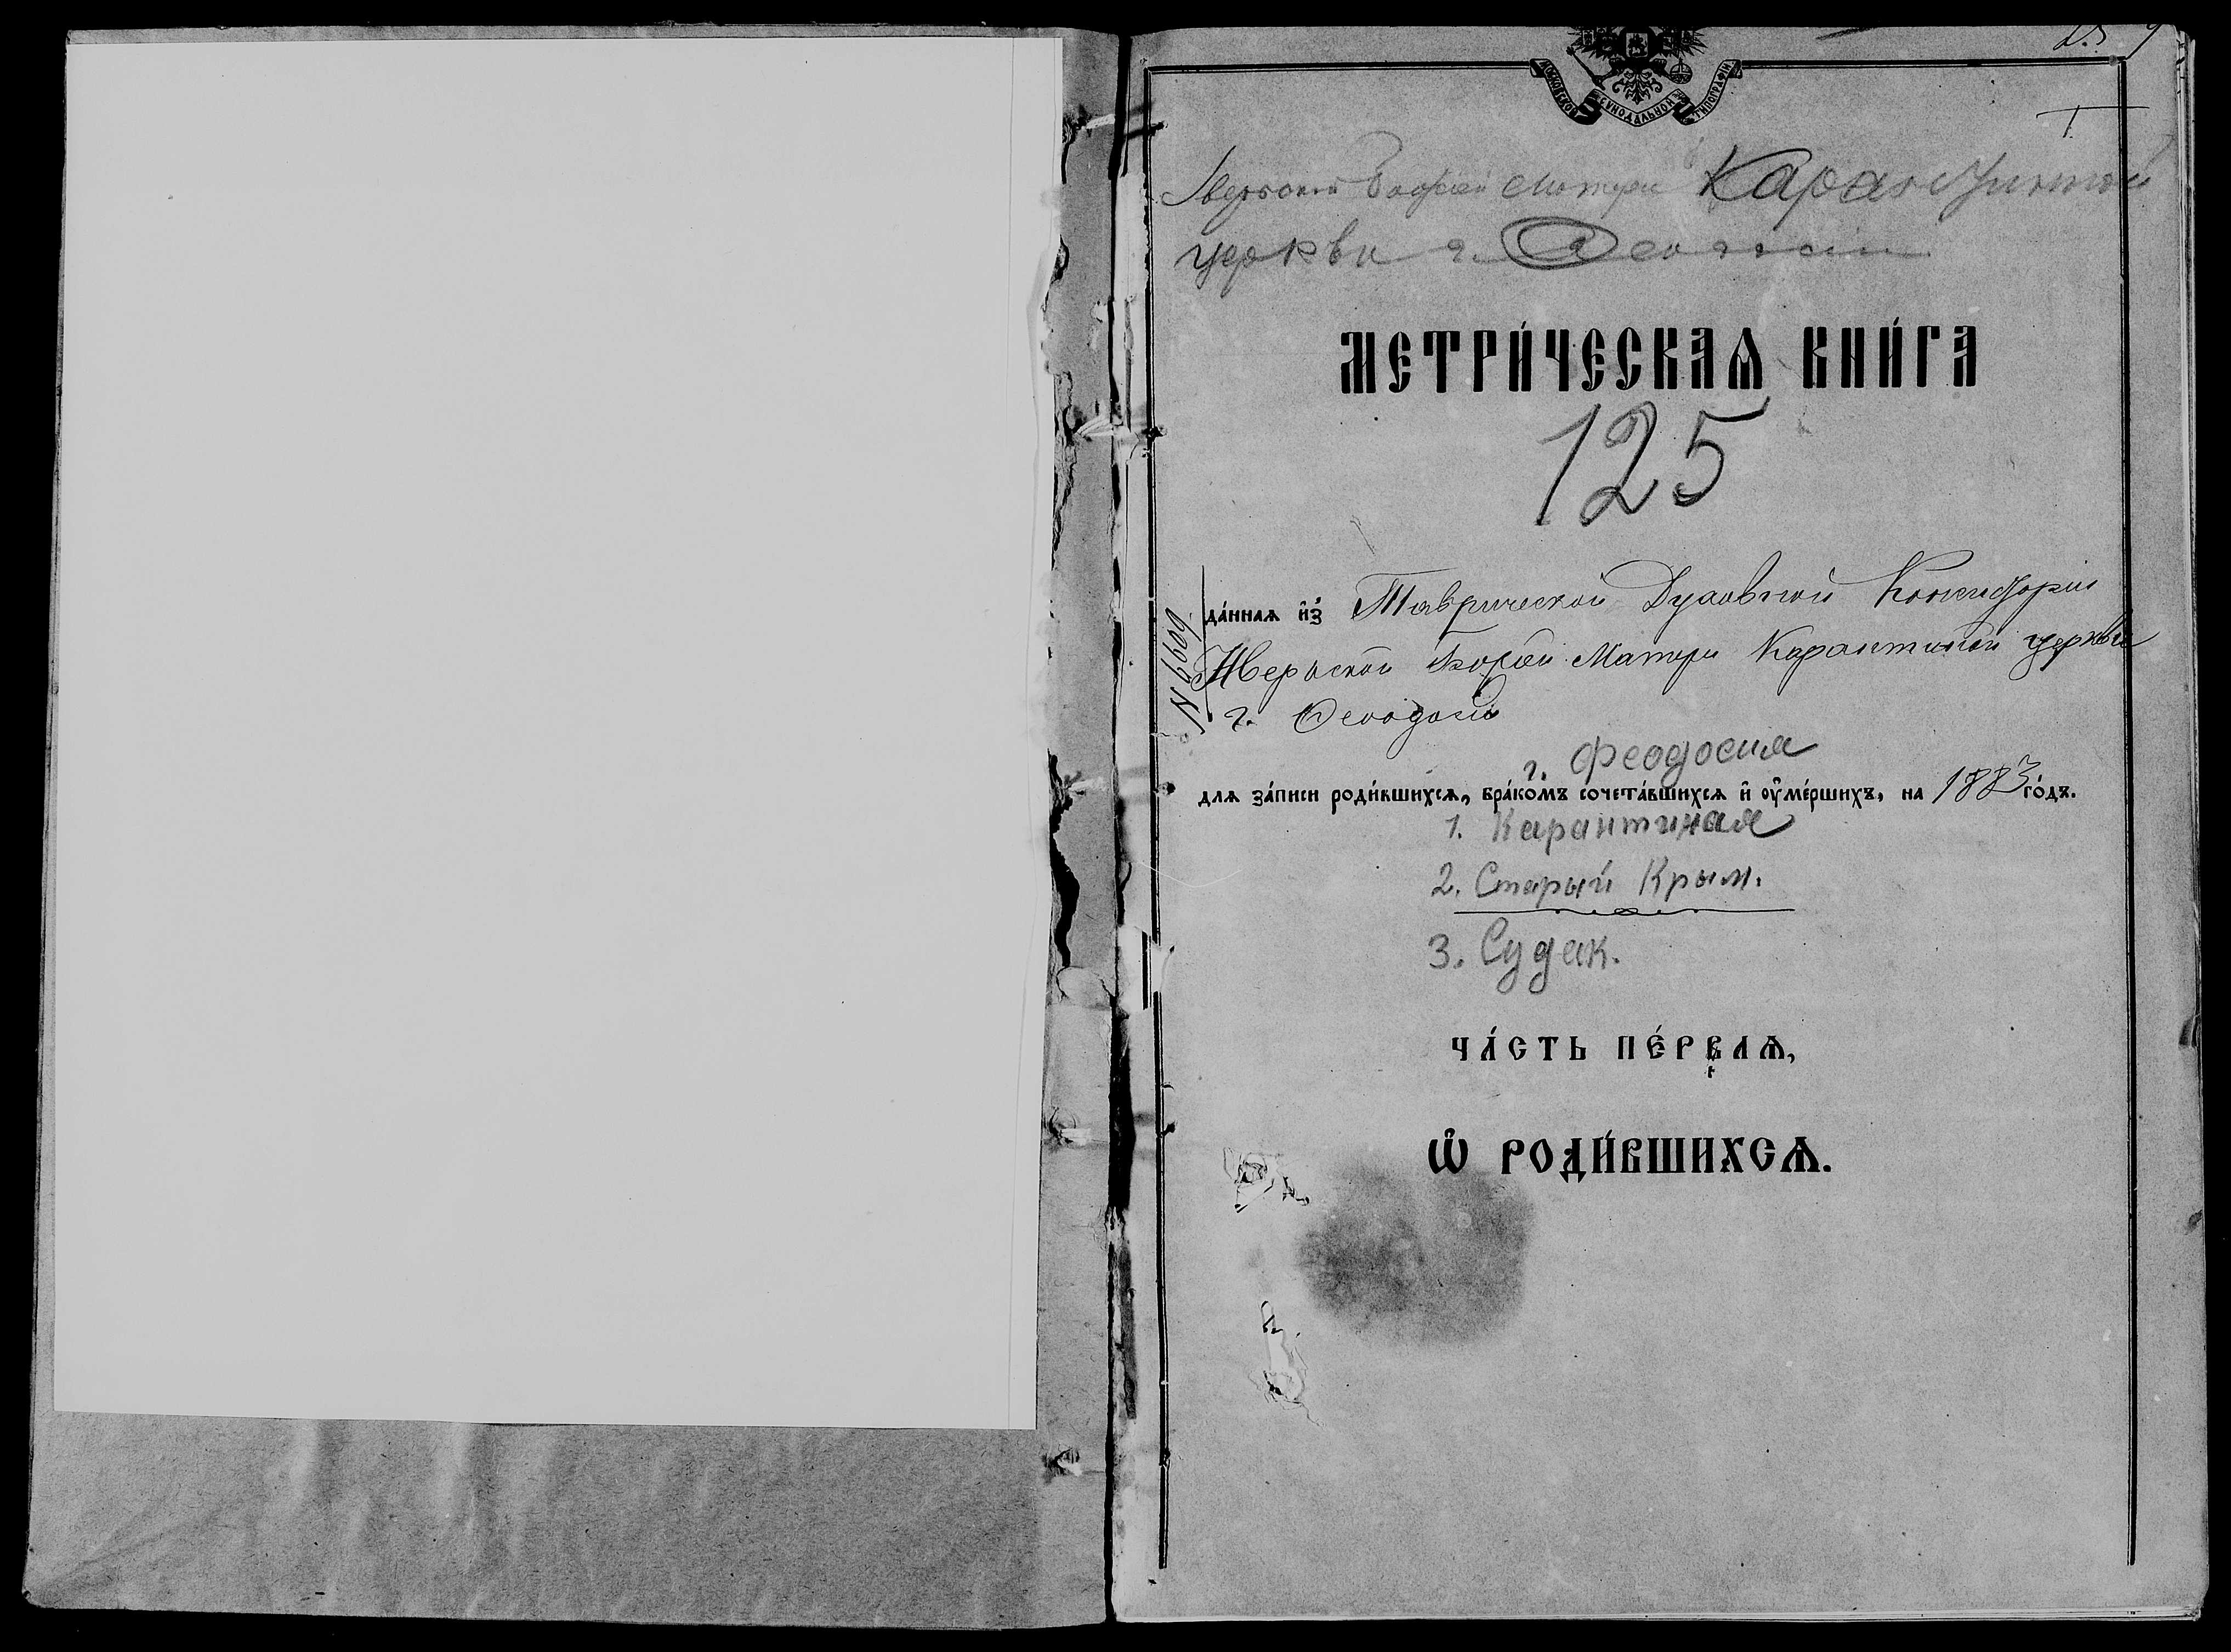 МОСКОВСКОЙ СѴНОДАЛЬНОЙ ТИПОГРАФІИ
1
Иверской Божіей Матери Карантинной
церкви г. Ѳеодосіи
МЕТРИ́ЧЕСКАѦ КНИ́ГА
125
№ 6609
да́ннаѧ и҆з̾ Таврической Духовной Консисторіи
Иверской Божіей Матери Карантинной церкви
г. Ѳеодосіи
г. Феодосия
длѧ за́писи роди́вшихсѧ, бра́комъ сочета́вшихсѧ и҆ ᲂу҆ме́ршихъ, на 1883 го́дъ.
1. Карантиная
2. Старый Крым.
3. Судак.
ЧА́СТЬ ПЕ́РВАѦ,
Ѡ҆ РОДИ́ВШИХСѦ.